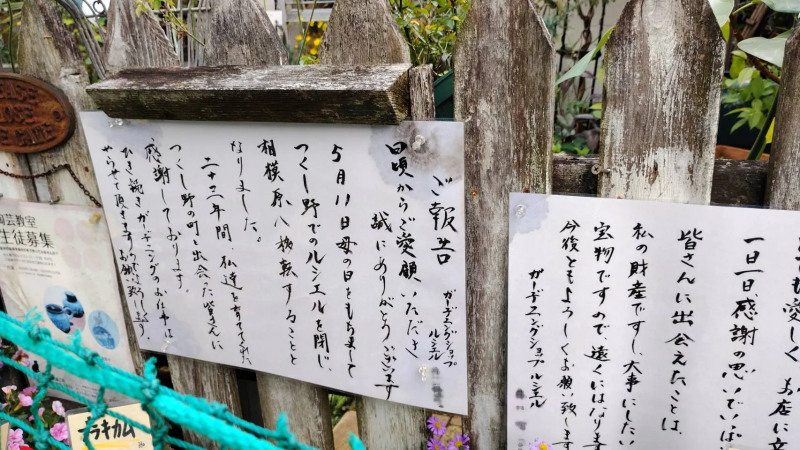 ご報告
ガーデニングショップ
ルシエル
日頃からご愛顧いただき
誠にありがとうございます
5月11日母の日をもちまして
つくし野でのルシエルを閉じ、
相模原へ移転することと
なりました。
二十三年間 私達を育ててくれ、
つくし野の町と出会った皆さんに
感謝しております。
ひき続きガーデニングのお仕事は
やらせて頂きますのでお願い致します。
も愛しく お店に立
一日一日、感謝の思いでいっぱ
皆さんに出会えたことは、
私の財産ですし、大事にしたい
宝物ですので、遠くにはなりま
今後ともよろしくお願い致します
ガーデニングショップ ルシエル
陶芸教室
生徒募集
CLOSE
GATE
ラキカム